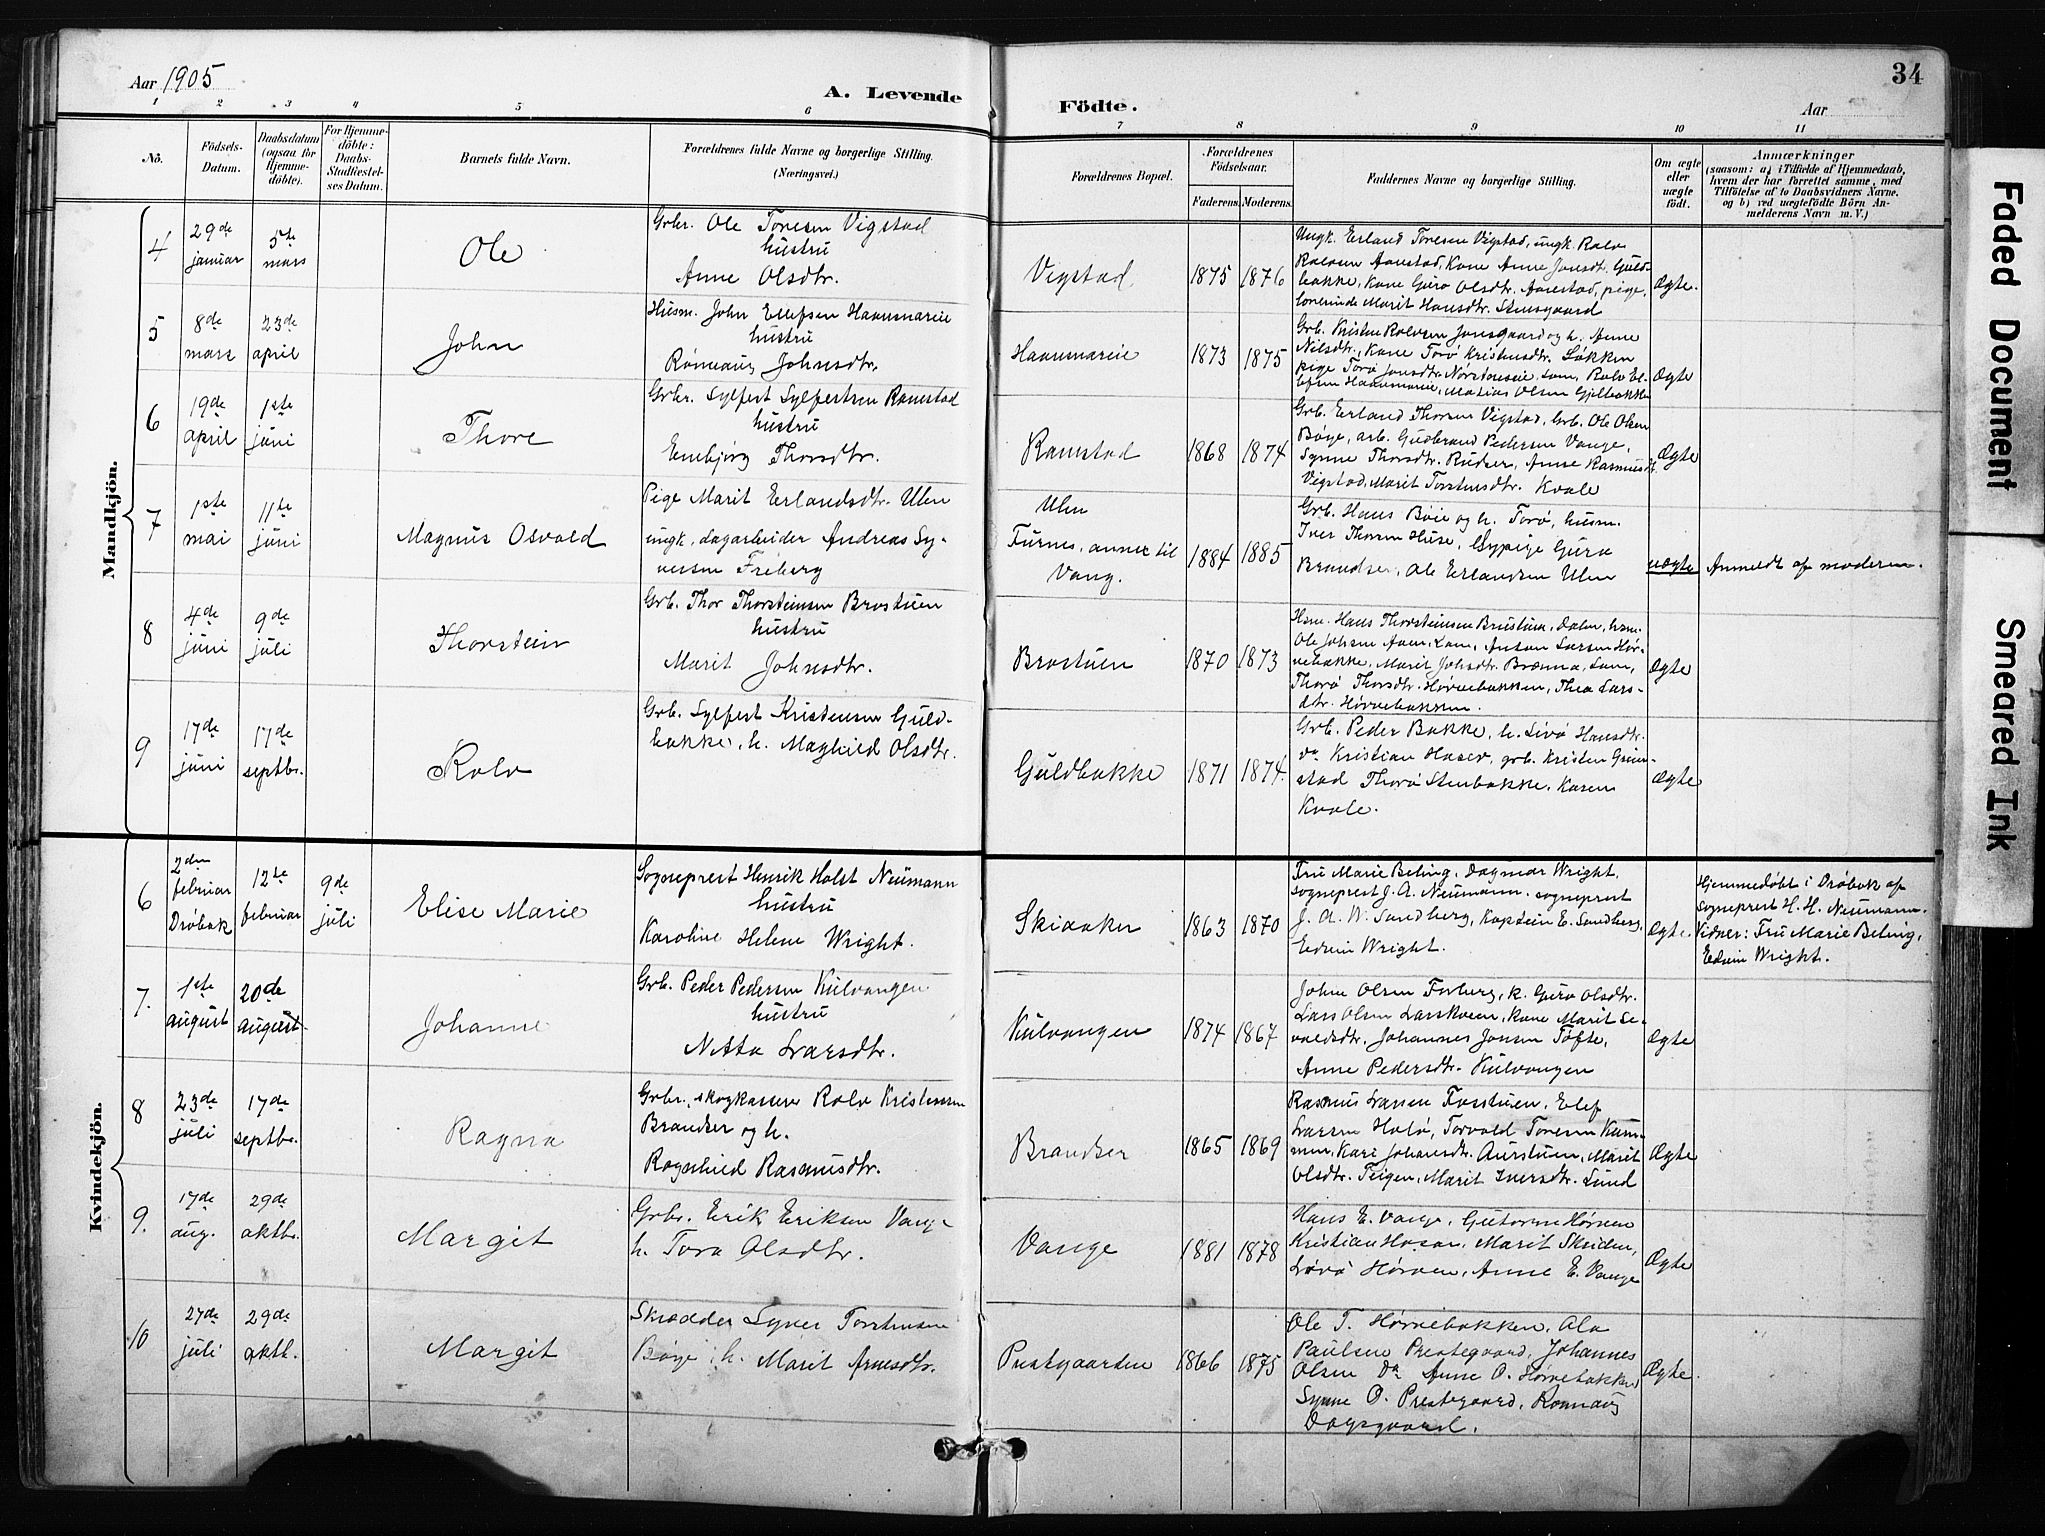 Aar 1905
A. Levende
Födte.
Aar
34
1 2 3 4 5 6 7 8 9 10 11
No.
Födsels-
Datum.
Daabsdatum
(ogsaa for
Hjemme-
döbte).
For Hjemme-
döbte:
Daabs-
Stadfæstel-
ses Datum.
Barnets fulde Navn.
Forældrenes fulde Navne og borgerlige Stilling.
(Næringsvei.)
Forældrenes Bopæl.
Forældrenes
Födselsaar.
Faderens.
Moderens.
Faddernes Navne og borgerlige Stilling.
Om ægte
eller
uægte
födt.
Anmærkninger
(saasom: a) i Tilfælde af Hjemmedaab,
hvem der har forrettet samme, med
Tilföielse af to Daabsvidners Navne.
og b) ved uægtefödte Börn An-
melderens Navn m. V.)
Mandkjön.
4
29de
januar
5te
mars
Ole
Grbr. Ole Toresen Vigstad
hustru
Anne Olsdtr.
Vigstad
1875
1876
Ungk. Erland Toresen Vigstad, ungk. Rolv
Rolvsen Aanstad, Kone Anne Jonsdt. Guld-
bakke, Kone Guro Olsdtr. Aanstad, pige,
lærerinde Marit Hansdtr. Stensgaard
Ægte.
5
8de
mars
23de
april
John
Husm. John Ellefsen Haanmareie
hustru
Rønnaug Johnsdtr.
Haanmareie
1873
1875
Grb. Kristen Rolvsen Jonsgaard og h. Anne
Nilsdtr., Kone Torø Kristensdtr. Løkken
pige Torø Jonsdtr. Nørstereie, som. Rolv El-
lefsen Haanmareie, Matias Olsen Gjelbakke
Ægte
6
19de
april
1ste
juni
Thore
Grbr. Sylfest Sylfestsen Ramstad
hustru
Embjørg Thorsdtr.
Ramstad
1868
1874
Grb. Erland Thorsen Vigstad, Grb. Ole Olsen
Bøye, arb. Gudbrand Pedersen Vange,
Synne Thorsdtr. Rudser, Anne Rasmusdt.
Vigstad, Marit Torstensdtr. Kvale
Ægte
7
1ste
mai
11te
juni
Magnus Osvald
Pige Marit Erlandsdtr. Ulen
ungk., dagarbeider Andreas Sy-
versen Friberg
Ulen
Furnes, annex til
Vang.
1884
1885
Grb. Hans Bøie og h. Torø, husm.
Iver Thorsen Huse, Sypige Guro
Brandser, Ole Erlandsen Ulen
uægte
Anmeldt af moderen.
8
4de
juni
9de
juli
Thorstein
Grb. Thor Thorsteinsen Brostuen
hustru
Marit Johnsdtr.
Brostuen
1870
1873
Hsm. Hans Thorsteinsen Brustuen, Dalen, hsm.
Ole Johsen Aaen, Lom, Anton Larsen Hør-
vebakke, Marit Johsdtr. Brænna, Lom,
Thorø Thorsdtr. Hørvebakken, Thea Lars-
dtr. Hørvebakken.
Ægte
9
17de
juni
17de
septbr.
Rolv
Grb. Sylfest Kristensen Guld-
bakke, h. Maghild Olsdtr.
Guldbakke
1871
1874.
Grb. Peder Bakke, h. Livø Hansdtr.
do Kristian Hosev, grb. Kristen Grim-
stad Thorø Stenbakke, Karen
Kvale.
Ægte
Kvindekjön.
6
2den
februar
Drøbak
12te
februar
9de
juli
Elise Marie
Sogneprest Henrik Holst Neumann
hustru
Karoline Helene Wright.
Skiaaker
1863
1870
Fru Marie Beling, Dagmar Wright,
sogneprest J. A. Neumann, sogneprest
J. A. W. Sandberg, Kaptein E. Sandberg,
Edvin Wright.
Ægte.
Hjemmedøbt i Drøbak af
sogneprest H. H. Neumann.
Vidner: Fru Marie Beling,
Edvin Wright.
7.
1ste
august
20de
august.
Johanne
Grb. Peder Pedersen Kulvangen
hustru
Netta Larsdtr.
Kulvangen
1874
1867
John Olsen Forberg, k. Guro Olsdtr.
Lars Olsen Larskveen, Kone Marit Se-
valdsdtr. Johannes Jonsen Tofte,
Anne Pedersdtr. Kulvangen
Ægte
8
23de
juli
17de
septbr.
Ragna
Grbr., skogkasserer Rolv Kristensen
Brandser og h.
Ragnhild Rasmusdtr.
Brandser
1865
1869
Rasmus Larsen Fosstuen, Elef
Larsen Holø, Torvald Toresen Kum-
men, Kari Johansdt. Aurstuen, Marit
Olsdtr. Teigen, Marit Iversdtr. Lund
Ægte
9.
17de
aug.
29de
oktbr.
Margit
Grbr. Erik Eriksen Vange
h. Tora Olsdtr.
Vange
1881
1878
Hans E. Vange, Guttorm Hørven
Kristian Hosar, Marit Skriden,
Livø Hørven, Anne E. Vange
Ægte
10
27de
juli
29de
oktb.
Margit
Skrædder Syver Torstensen
Bøye, h. Marit Arnesdtr.
Prestgaarden
1866
1875
Ole T. Hørvebakken, Ola
Paulsen Prestegaard, Johannes
Olsen Do Anne O. Hørvebakken
Synne O. Prestegaard, Rønnaug
Dagsgaard.
Ægte.
Faded Document
Smeared Ink